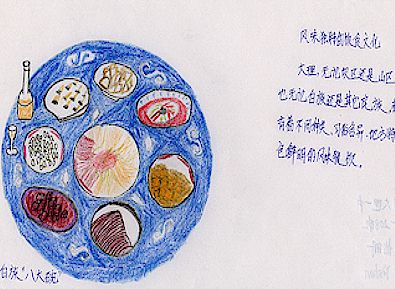 风味独特的饮食文化
大理,无论坝区还是山区
也无论白族还是其他民族,
有着不同种类、习俗各异、地方特
色鲜明的风味餐饮。
白族"八大碗"